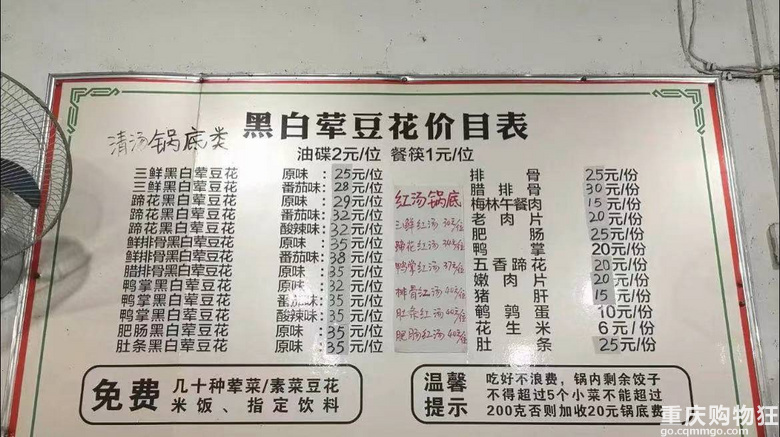 黑白荤豆花价目表
清汤锅底类
油碟2元/位 餐筷1元/位
三鲜黑白荤豆花 原味:25元/位
三鲜黑白荤豆花 番茄味:28元/位
蹄花黑白荤豆花 原味:29元/位
蹄花黑白荤豆花 番茄味:32元/位
蹄花黑白荤豆花 酸辣味:32元/位
鲜排骨黑白荤豆花 原味:35元/位
鲜排骨黑白荤豆花 番茄味:38元/位
腊排骨黑白荤豆花 原味:35元/位
鸭掌黑白荤豆花 原味:32元/位
鸭掌黑白荤豆花 番茄味:35元/位
鸭掌黑白荤豆花 酸辣味:35元/位
肥肠黑白荤豆花 原味:35元/位
肚条黑白荤豆花 原味:35元/位
红汤锅底
三鲜红汤30元/位
蹄花红汤34元/位
鸭掌红汤37元/位
排骨红汤40元/位
肚条红汤40元/位
肥肠红汤40元/位
排骨 25元/份
腊排骨 30元/份
梅林午餐肉 15元/份
老肉片 20元/份
肥肠 25元/份
鸭掌 20元/份
五香蹄花 20元/份
嫩肉片 20元/份
猪肝 15元/份
鹌鹑蛋 10元/份
花生米 6元/份
肚条 25元/份
免费 几十种荤菜/素菜豆花
米饭、指定饮料
温馨提示
吃好不浪费，锅内剩余饺子
不得超过5个小菜不能超过
200克否则加收20元锅底费
重庆购物狂
go.cqmmgo.com